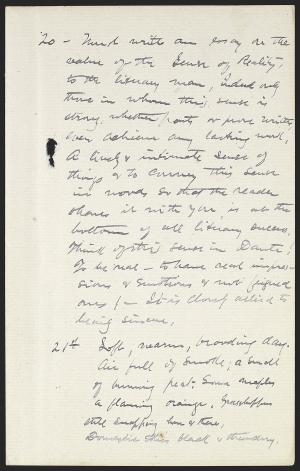 20 - Must write an essay on the
value of the Sense of Reality,
to the literary man, indeed only
those in whom this sense is
strong, whether poets or prose writers
ever achieve any lasting work.
A lively & intimate sense of
things & to convey this sense
in words so that the reader
shares it with you, is at the
bottom of all literary success.
Think of this sense in Dante!
To be real - to have real impres-
sions & emotions & not feigned
ones! - It is closely allied to
being sincere.
21st Soft, warm, brooding day.
Air full of smoke; a smell
of burning peat. Some maples
a flaming orange, Grasshoppers
still snapping here & there.
Domestic skies black & thundery.